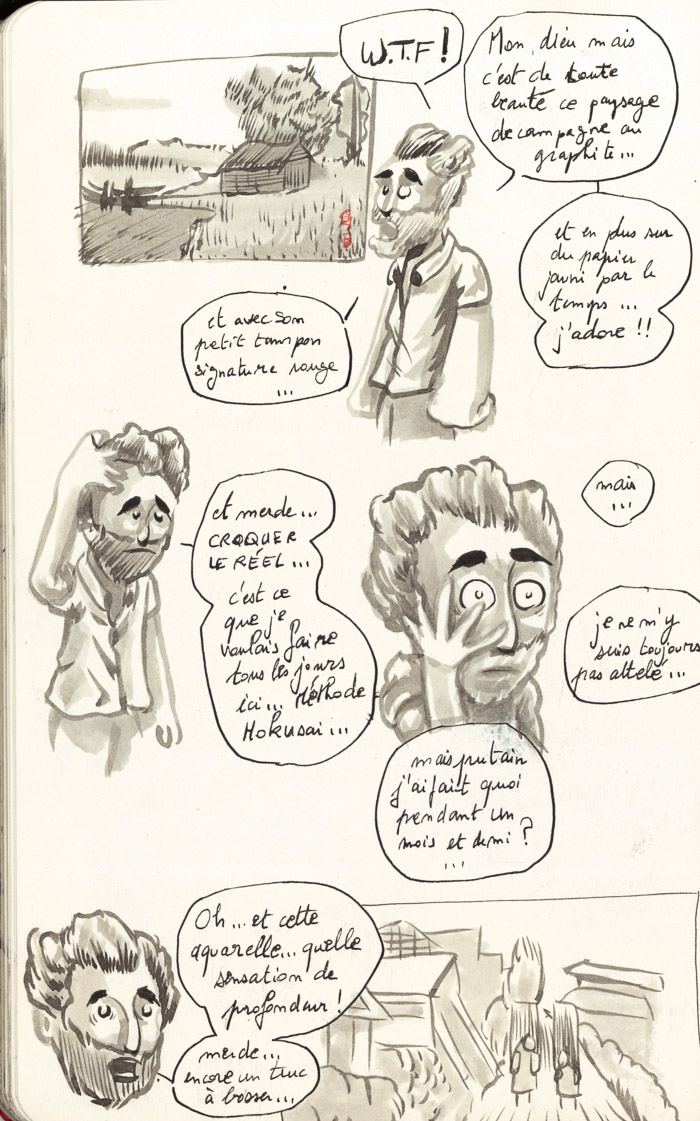 W.T.F !
Mon dieu mais
c'est de toute
beauté ce paysage
de campagne au
graphite...
et en plus sur
du papier
jauni par le
temps ...
j'adore !!
et avec son
petit tampon
signature rouge
...
et merde...
CROQUER
LE RÉEL ...
c'est ce
que je
voulais faire
tous les jours
ici... Méthode
Hokusai...
mais
...
je ne m'y
suis toujours
pas attelé...
mais putain
j'ai fait quoi
pendant un
mois et demi ?
...
Oh... et cette
aquarelle... quelle
sensation de
profondeur !
merde...
encore un truc
à bosser...